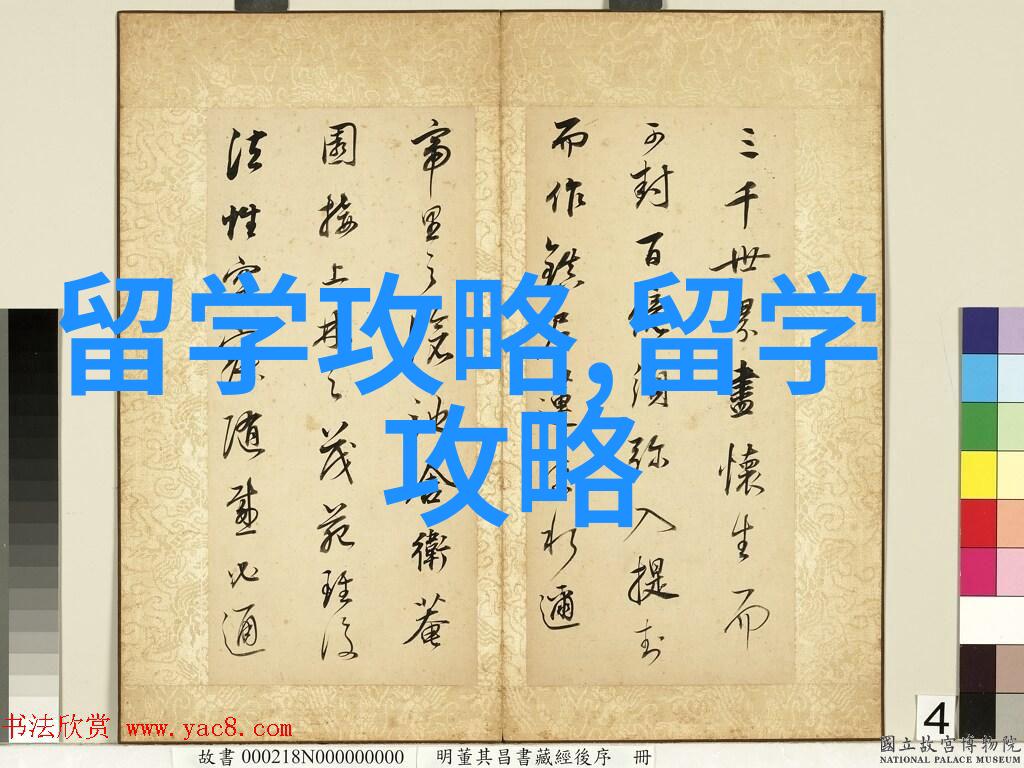 三千世界盡懷生而
可封百億須弥入提封
而作鎮
帝里之舍衛菴
園接上林之茂苑
法性空寂隨感必通
留学攻略,留学
攻略
书法欣赏 www.yac8.com
4
國立故宮博物院
NATIONAL PALACE MUSEUM
故書 000218N000000000 明董其昌書藏經後序 冊